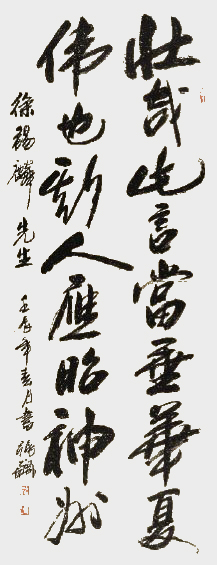 壯哉此言當垂華夏
伟也斯人應昭神州
徐锡麟先生
壬辰年春月書